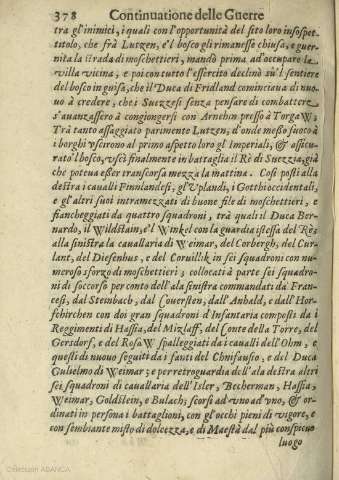 378 Continuatione delle Guerre
tra gl'inimici, i quali con l'opportunità del sito loro insospet-
titolo, che frà Lutzen, e'l bosco gli rimanesse chiusa, e guer-
nita la strada di moschettieri, mandò prima ad'occupare la
villa vicina, e poi con tutto l'essercito declinò sù'l sentiere
del bosco in guisa, che il Duca di Fridland cominciaua di nuo-
uo à credere, che i Suezzesi senza pensare di combattere
s'auanzassero à congiongersi con Arnehin presso à TorgaW;
Trà tanto assaggiato parimente Lutzen, d'onde messo fuoco à
i borghi vscirono al primo aspetto loro gl'Imperiali, & assicu-
rato'l bosco, vscì finalmente in battaglia il Rè di Suezzia, già
che poteua esser transcorsa mezza la mattina. Così posti alla
destra i caualli Finnlandesi, gl'Vplandi, i Gotthi occidentali,
e gl'altri suoi intramezzati di buone file di moschettieri, e
fiancheggiati da quattro squadroni, trà quali il Duca Ber-
nardo, il Wildstain, e'l Winkel con la guardia istessa del Rè;
alla sinistra la cauallaria di Weimar, del Corbergh, del Cur-
lant, del Diesenhus, e del Coruillik in sei squadroni con nu-
meroso sforzo di moschettieri; collocati à parte sei squadro-
ni di soccorso per conto dell'ala sinistra commandati da Fran-
cesi, dal Steinbach, dal Couersten, dall'Anhald, e dall'Hor-
schirchen con doi gran squadroni d'Infantaria composti da i
Reggimenti di Hassia, del Mizlaff, del Conte della Torre, del
Gersdorf, e del RosaW spalleggiati da i caualli dell'Ohm, e
questi di nuouo seguiti da i fanti del Chnifausio, e del Duca
Gulielmo di Weimar; e per retroguardia dell'ala destra altri
sei squadroni di cauallaria dell'Isler, Becherman, Hassia,
Weimar, Goldstein, e Bulach; scorsi ad vno ad'vno, & or-
dinati in persona i battaglioni, con gl'occhi pieni di vigore, e
con sembiante misto di dolcezza, e di Maestà dal più conspicuo
luogo